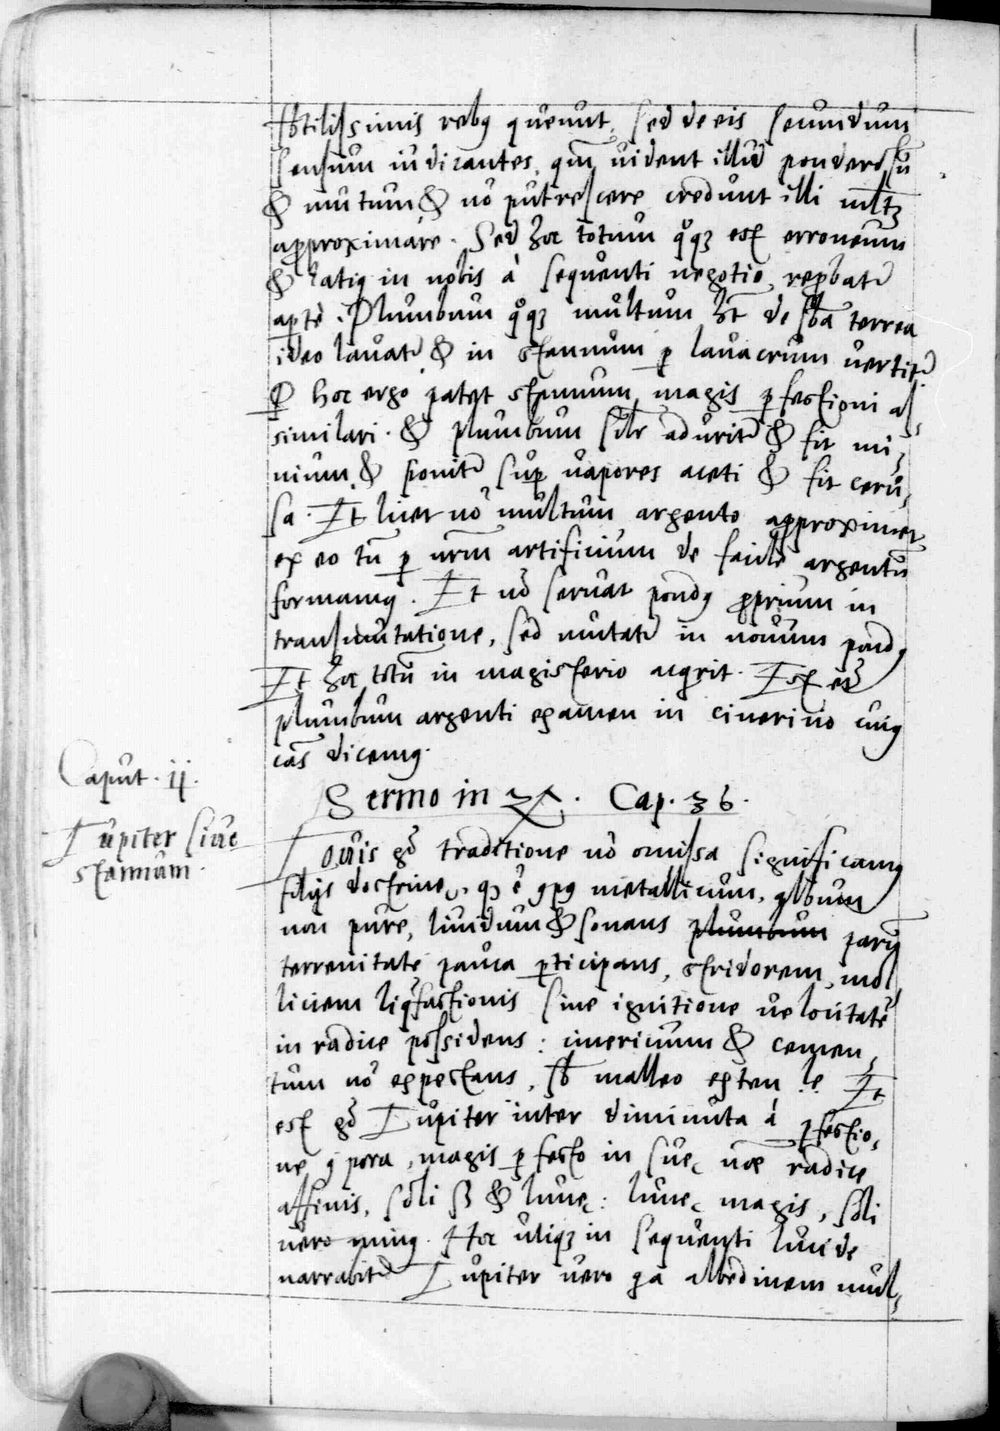 sbtilissimis rebꝰ queunt, sed de eis secundum
sensum iudicantes, qm̄ uident illud ponderosũ
& mutum & nõ putrescere credunt illi mltꝫ
approximare. Sed hoc totum qͦqꝫ est erroneum
& latiꝰ in nobis à sequenti negotio reprbat᷑
apte. Plumbum qͦqꝫ multum ht̃ de sb̃a terrea
ideo lauat᷑ & in stannum ꝑ lauacrum uertit᷑
Ꝑ hoc ergo patet stannum magis ꝑfectioni as,
similari. & plumbum sil̃r adurit᷑ & fit mi,
nium & ponit᷑ suꝑ uapores aceti & fit ceru,
sa. Et licet nõ multum argento approximet
ex eo tñ ꝑ nr̃m artificium de facile argentũ
formamꝰ. Et nõ seruat pondꝰ proprium in
transmutatione, sed mutat᷑ in nouum pondꝰ
Et hoc totũ in magisterio acqrit. Est et̃
plumbum argenti examen in cinericio cuiꝰ
cãs dicemꝰ.
Caput. ij.
Iupiter siue
stannum.
Sermo in ♃. Cap. 36.
Iouis g̃ traditione nõ omissa significamꝰ
filijs doctrinę, qꝫ ẽ cpꝰ metallicum, album
non pure, liuidum & sonans plumbum parũ
terreitatẽ pauca ꝑticipans, stridorem, mol
liciem liqͣfactionis sine ignitione uelocitatẽ
in radice possidens: cinericium & cemen,
tum nõ expectans, sb malleo exten.le. Et
est g̃ Iupiter inter diminuta à ꝑfectio,
ne cpora, magis ꝑfecto in suę nãe radice
affinis, soli sꝫ & lunę: lunę magis, soli
uero minꝰ. Hoc utiqꝫ in sequenti lucide
narrabit᷑ Iupiter uero qa albedinem mul,